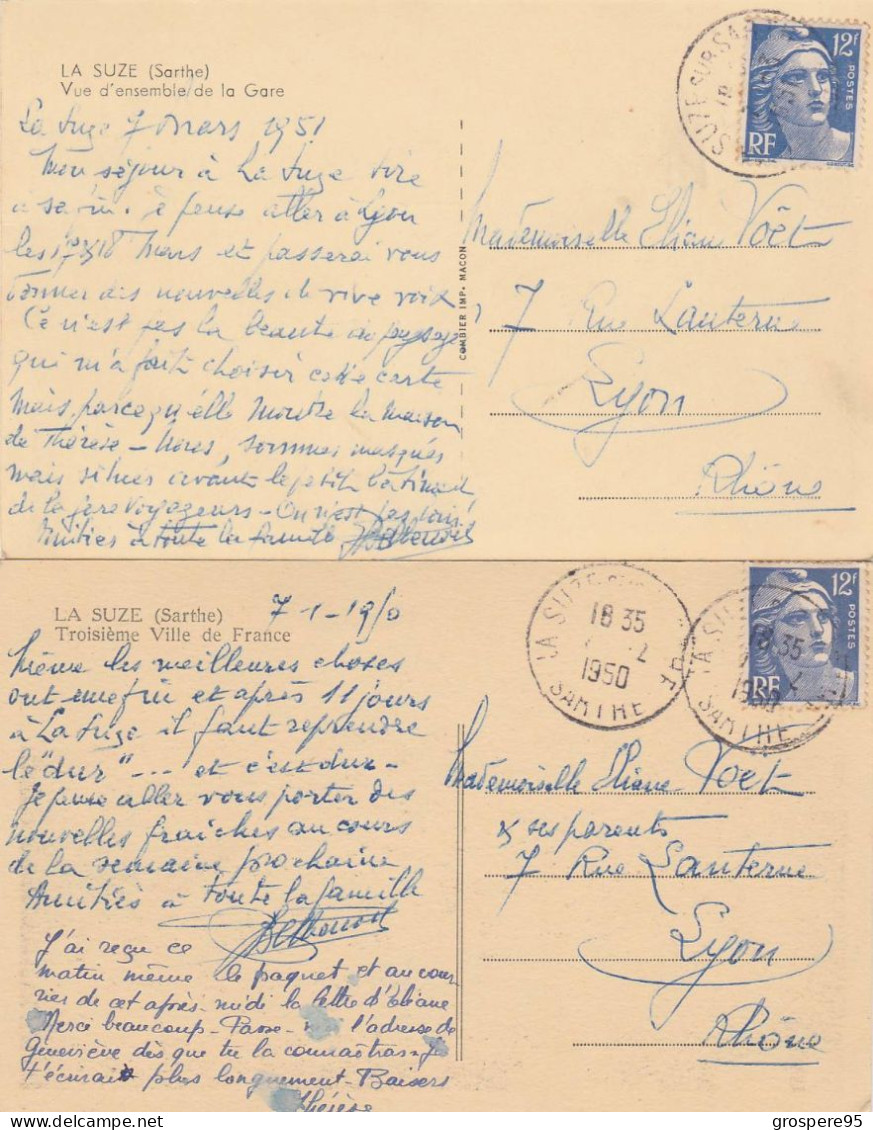 LA SUZE (Sarthe)
Vue d'ensemble de la Gare
La Suze 7 Mars 1951
Mon séjour à La Suze tire
à sa fin. Je pense aller à Lyon
les 17 & 18 Mars et passerai vous
donner des nouvelles de vive voix
Ce n'est pas la beauté du paysage
qui m'a fait choisir cette carte
mais parce qu'elle montre la maison
de Thérèse - Nous, sommes masqués
mais situés avant le petit bâtiment
de la gare voyageurs - On n'est pas loin!
Amitiés à toute la famille
COMBIER IMP. MACON
SUZE SUR SARTHE
18
12F
POSTES
RF
Mademoiselle Eliane Voët
7 Rue Lanterne
Lyon
Rhône
LA SUZE (Sarthe)
Troisième Ville de France
7-1-1950
Même les meilleures choses
ont une fin et après 11 jours
à La Suze il faut reprendre
le "dur" --- et c'est dur -
Je pense aller vous porter des
nouvelles fraîches au cours
de la semaine prochaine
Amitiés à toute la famille
J'ai reçu ce
matin même le paquet et au cour-
rier de cet après-midi la lettre d'Eliane
Merci beaucoup - Passe - l'adresse de
Geneviève dès que tu la connaîtras - Je
t'écrirai plus longuement - Baisers
Thérèse
LA SUZE SUR
18 35
1950
SARTHE
LA SUZE
18 35
1950
SARTHE
12F
POSTES
RF
Mademoiselle Eliane Voët
& ses parents
7 Rue Lanterne
Lyon
Rhône
grospere95